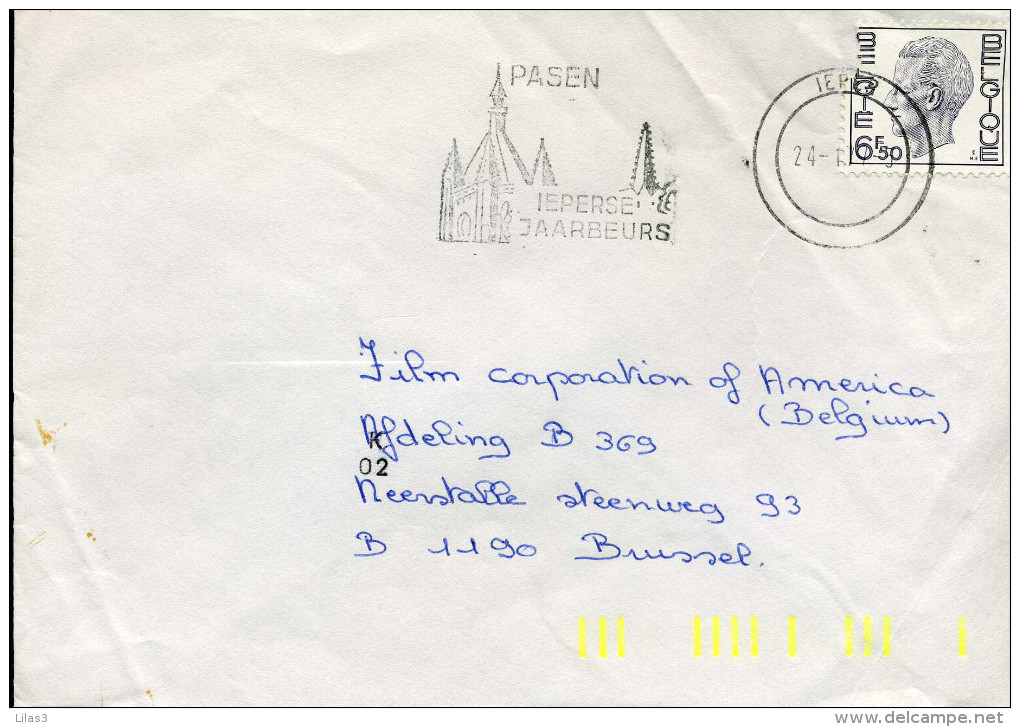 PASEN
IEPERSE
JAARBEURS
BELGIË
BELGIQUE
6F50
24-
Film corporation of America
(Belgium)
Afdeling B 369
K
02
Neerstalle steenweg 93
B 1190 Brussel.
Lilas3
www.delcampe.net